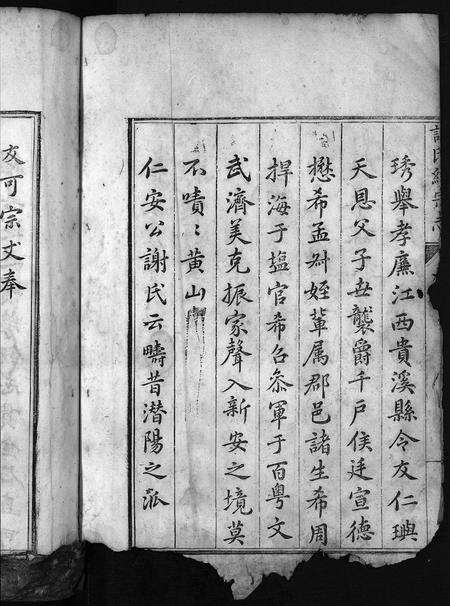 琇舉孝廉江西貴溪縣令友仁璵
天恩父子世襲爵千戶侯廷宣德
懋希孟叔姪輩属郡邑諸生希周
捍海于塩官希召叅軍于百粤文
武濟美克振家聲入新安之境莫
不嘖〻黄山
仁安公謝氏云疇昔潜陽之派
友可宗丈奉